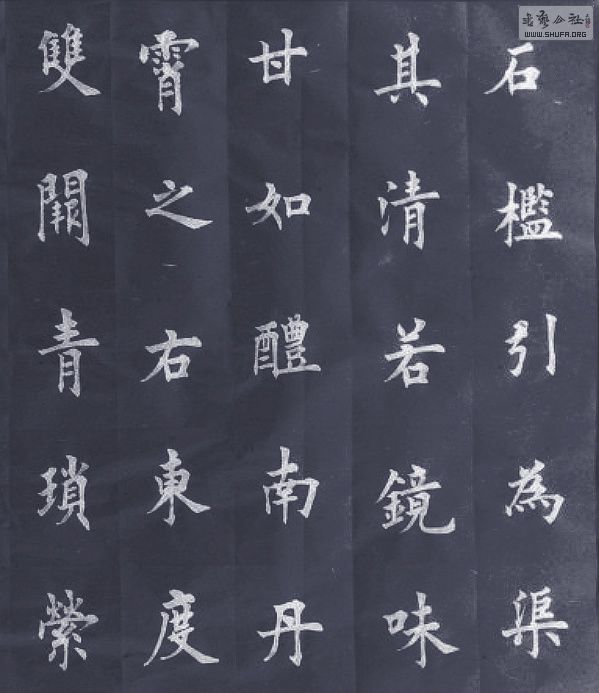 石檻引為渠
其清若鏡味
甘如醴南丹
霄之右東度
雙闕青瑣縈
公社
WWW.SHUFA.ORG